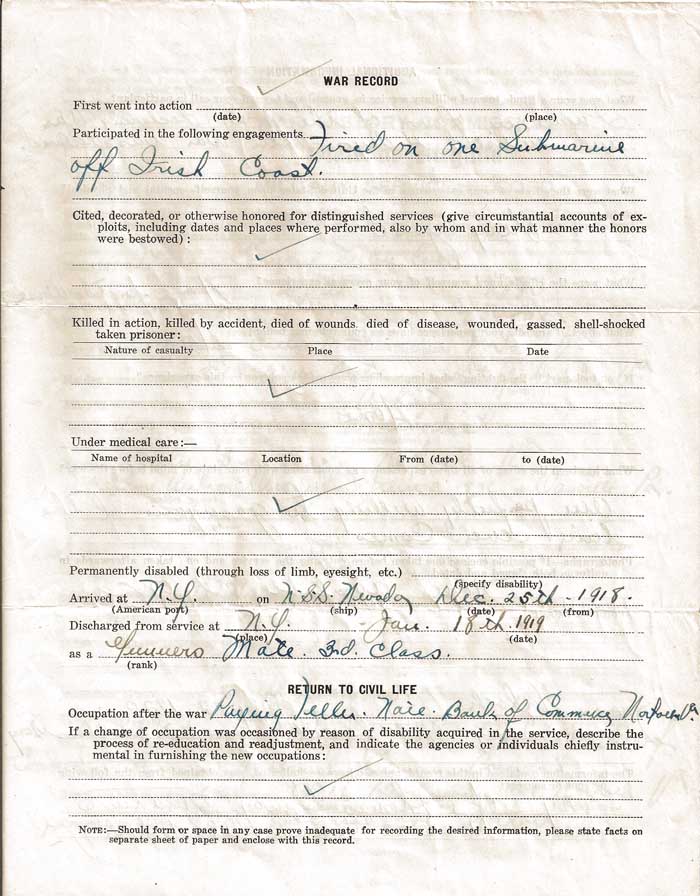 WAR RECORD
First went into action
(date) (place)
Participated in the following engagements Fired on one Submarine
off Irish Coast.
Cited, decorated, or otherwise honored for distinguished services (give circumstantial accounts of ex-
ploits, including dates and places where performed, also by whom and in what manner the honors
were bestowed) :
Killed in action, killed by accident, died of wounds, died of disease, wounded, gassed, shell-shocked
taken prisoner:
Nature of casualty Place Date
Under medical care:—
Name of hospital Location From (date) to (date)
Permanently disabled (through loss of limb, eyesight, etc.)
(specify disability)
Arrived at N.Y. on U.S.S. Nevada Dec. 25th - 1918.
(American port) (ship) (date) (from)
Discharged from service at N.Y. - Jan. 18th. 1919
(place) (date)
as a Gunners Mate. 3rd. Class.
(rank)
RETURN TO CIVIL LIFE
Occupation after the war Paying Teller. Bank of Commerce Va
If a change of occupation was occasioned by reason of disability acquired in the service, describe the
process of re-education and readjustment, and indicate the agencies or individuals chiefly instru-
mental in furnishing the new occupations:
NOTE:—Should form or space in any case prove inadequate for recording the desired information, please state facts on
separate sheet of paper and enclose with this record.